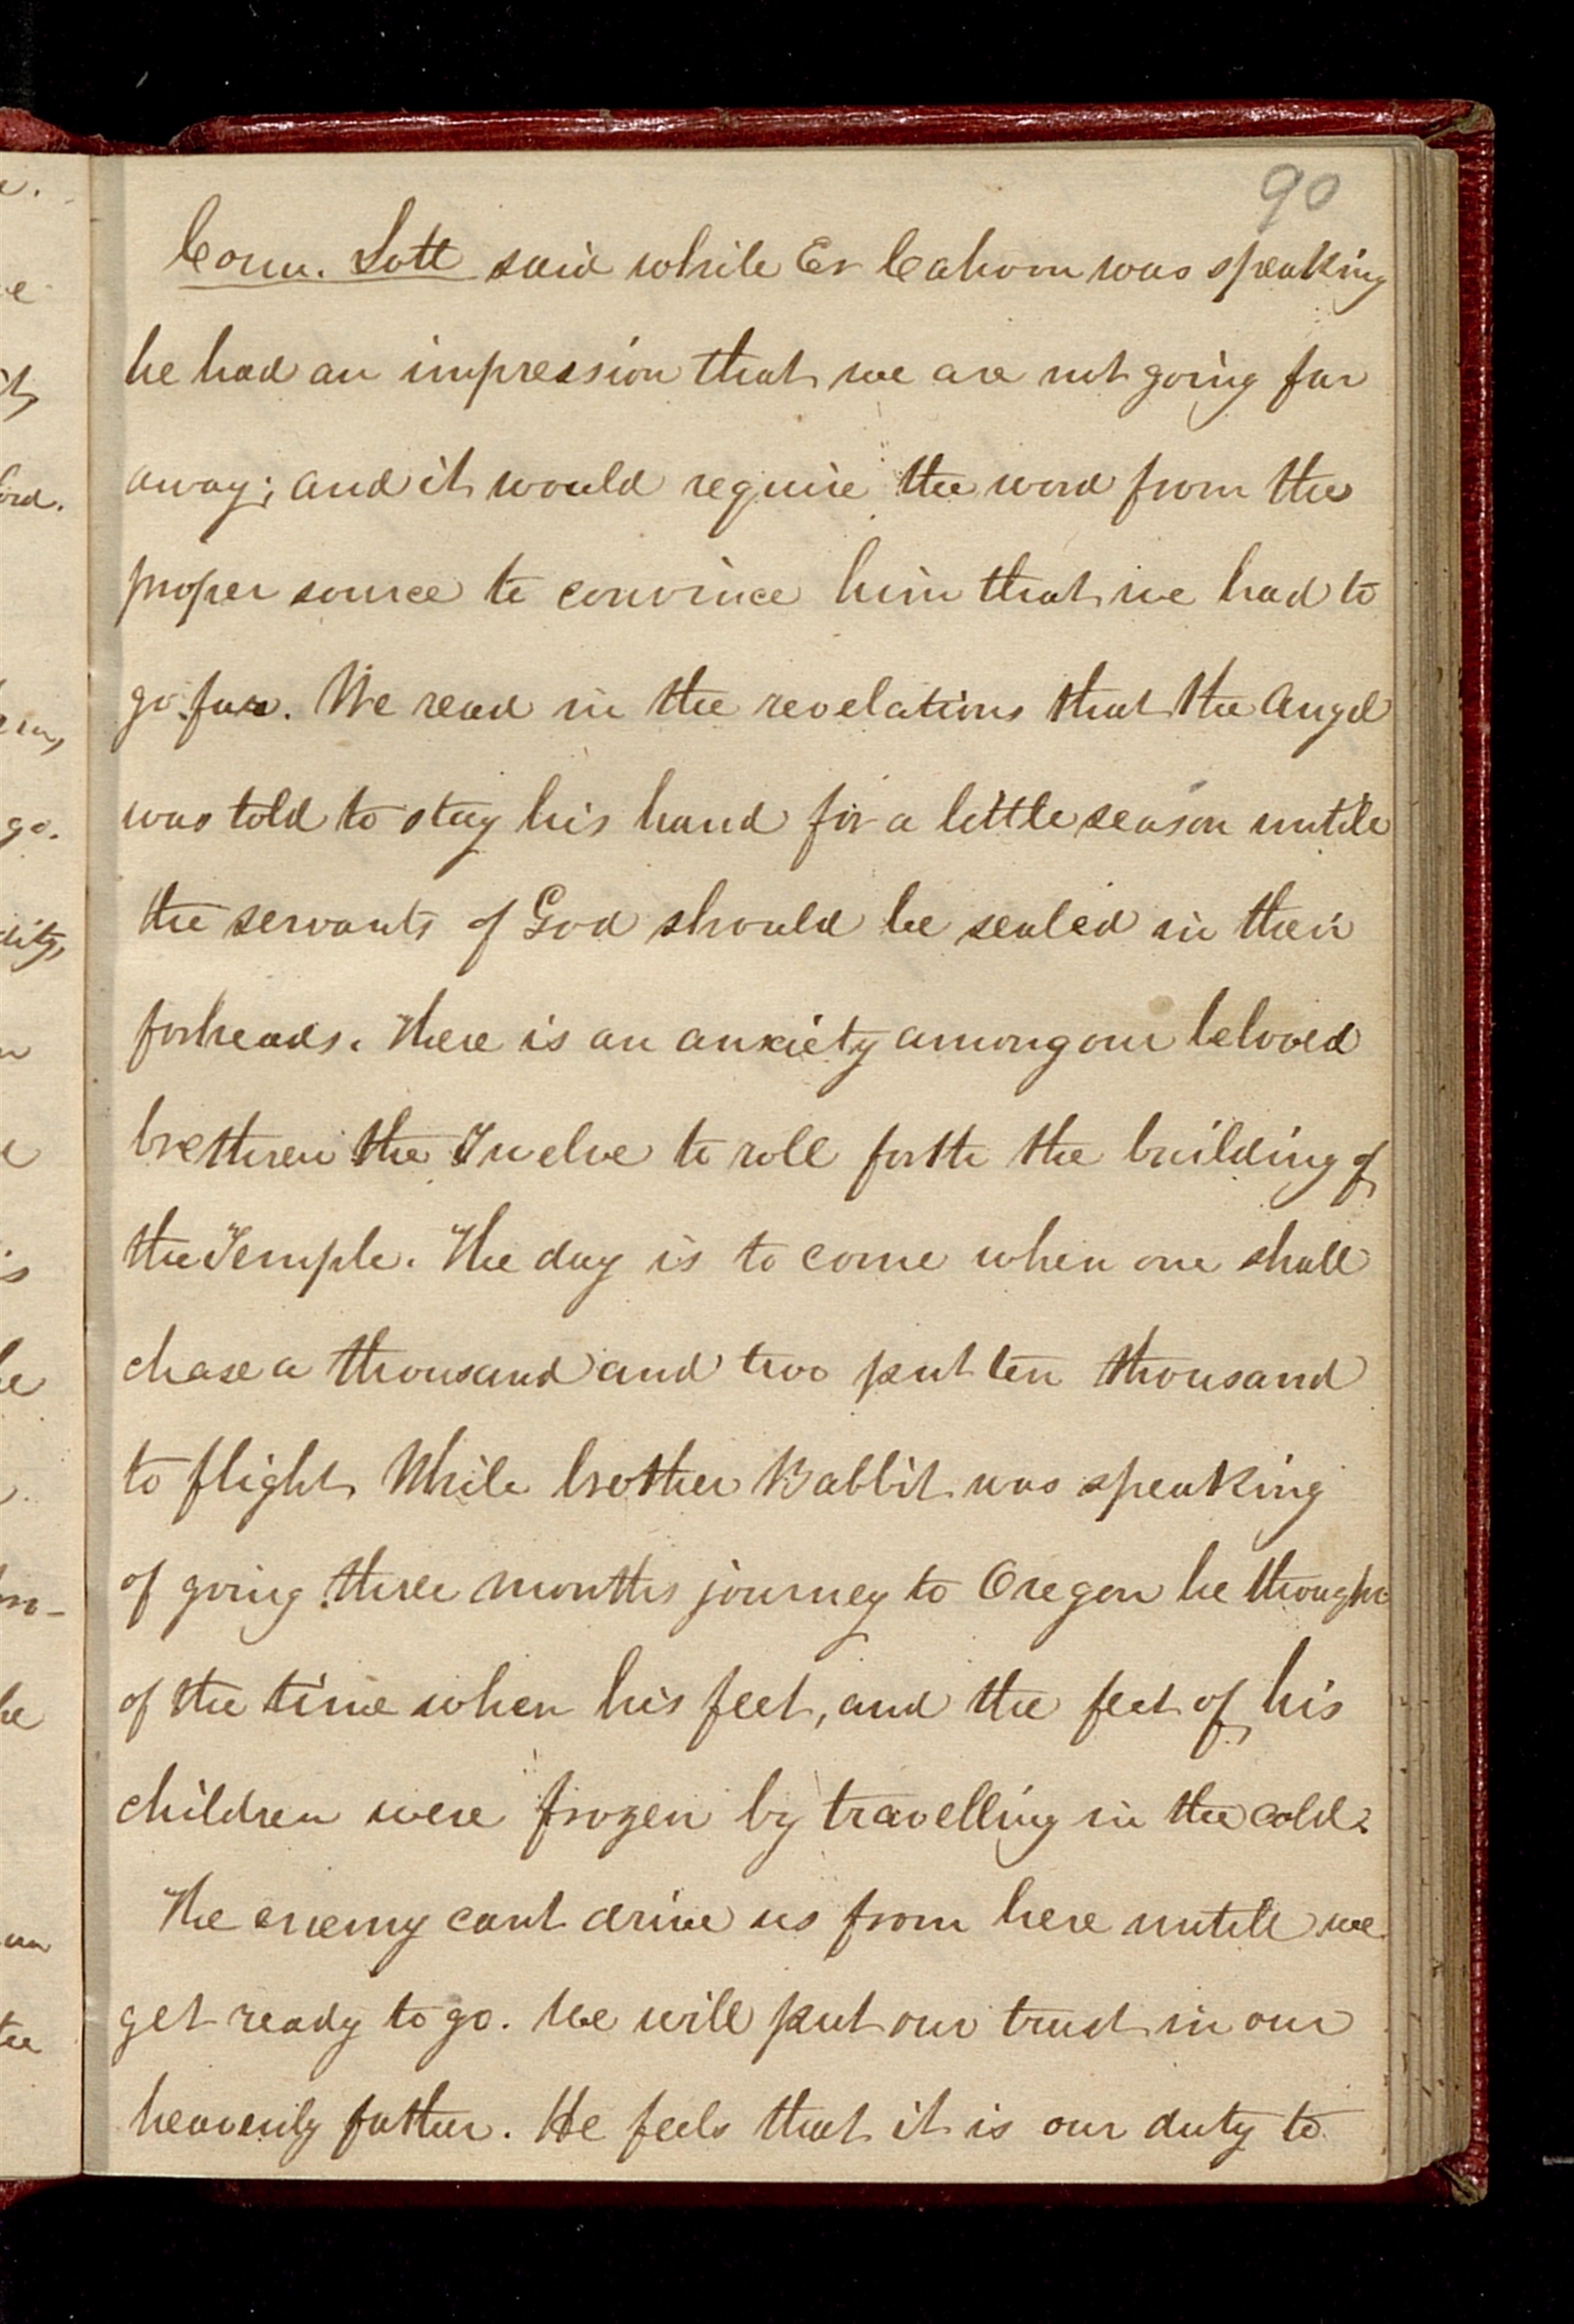 90
Coun. Lott said while Er Cahoon was speaking
he had an impression that we are not going far
away; and it would require the word from the
proper source to convince him that we had to
go far. We read in the revelations that the Angel
was told to stay his hand for a little season untill
the servants of God should be sealed in their
forheads. There is an anxiety among our beloved
brethren the Twelve to roll forth the building of
the Temple. The day is to come when one shall
chase a thousand and two put ten thousand
to flight. While brother Babbit was speaking
of going three months journey to Oregon he thought
of the time when his feet, and the feet of his
children were frozen by travelling in the cold.
The enemy cant drive us from here untill we
get ready to go. We will put our trust in our
heavenly father. He feels that it is our duty to